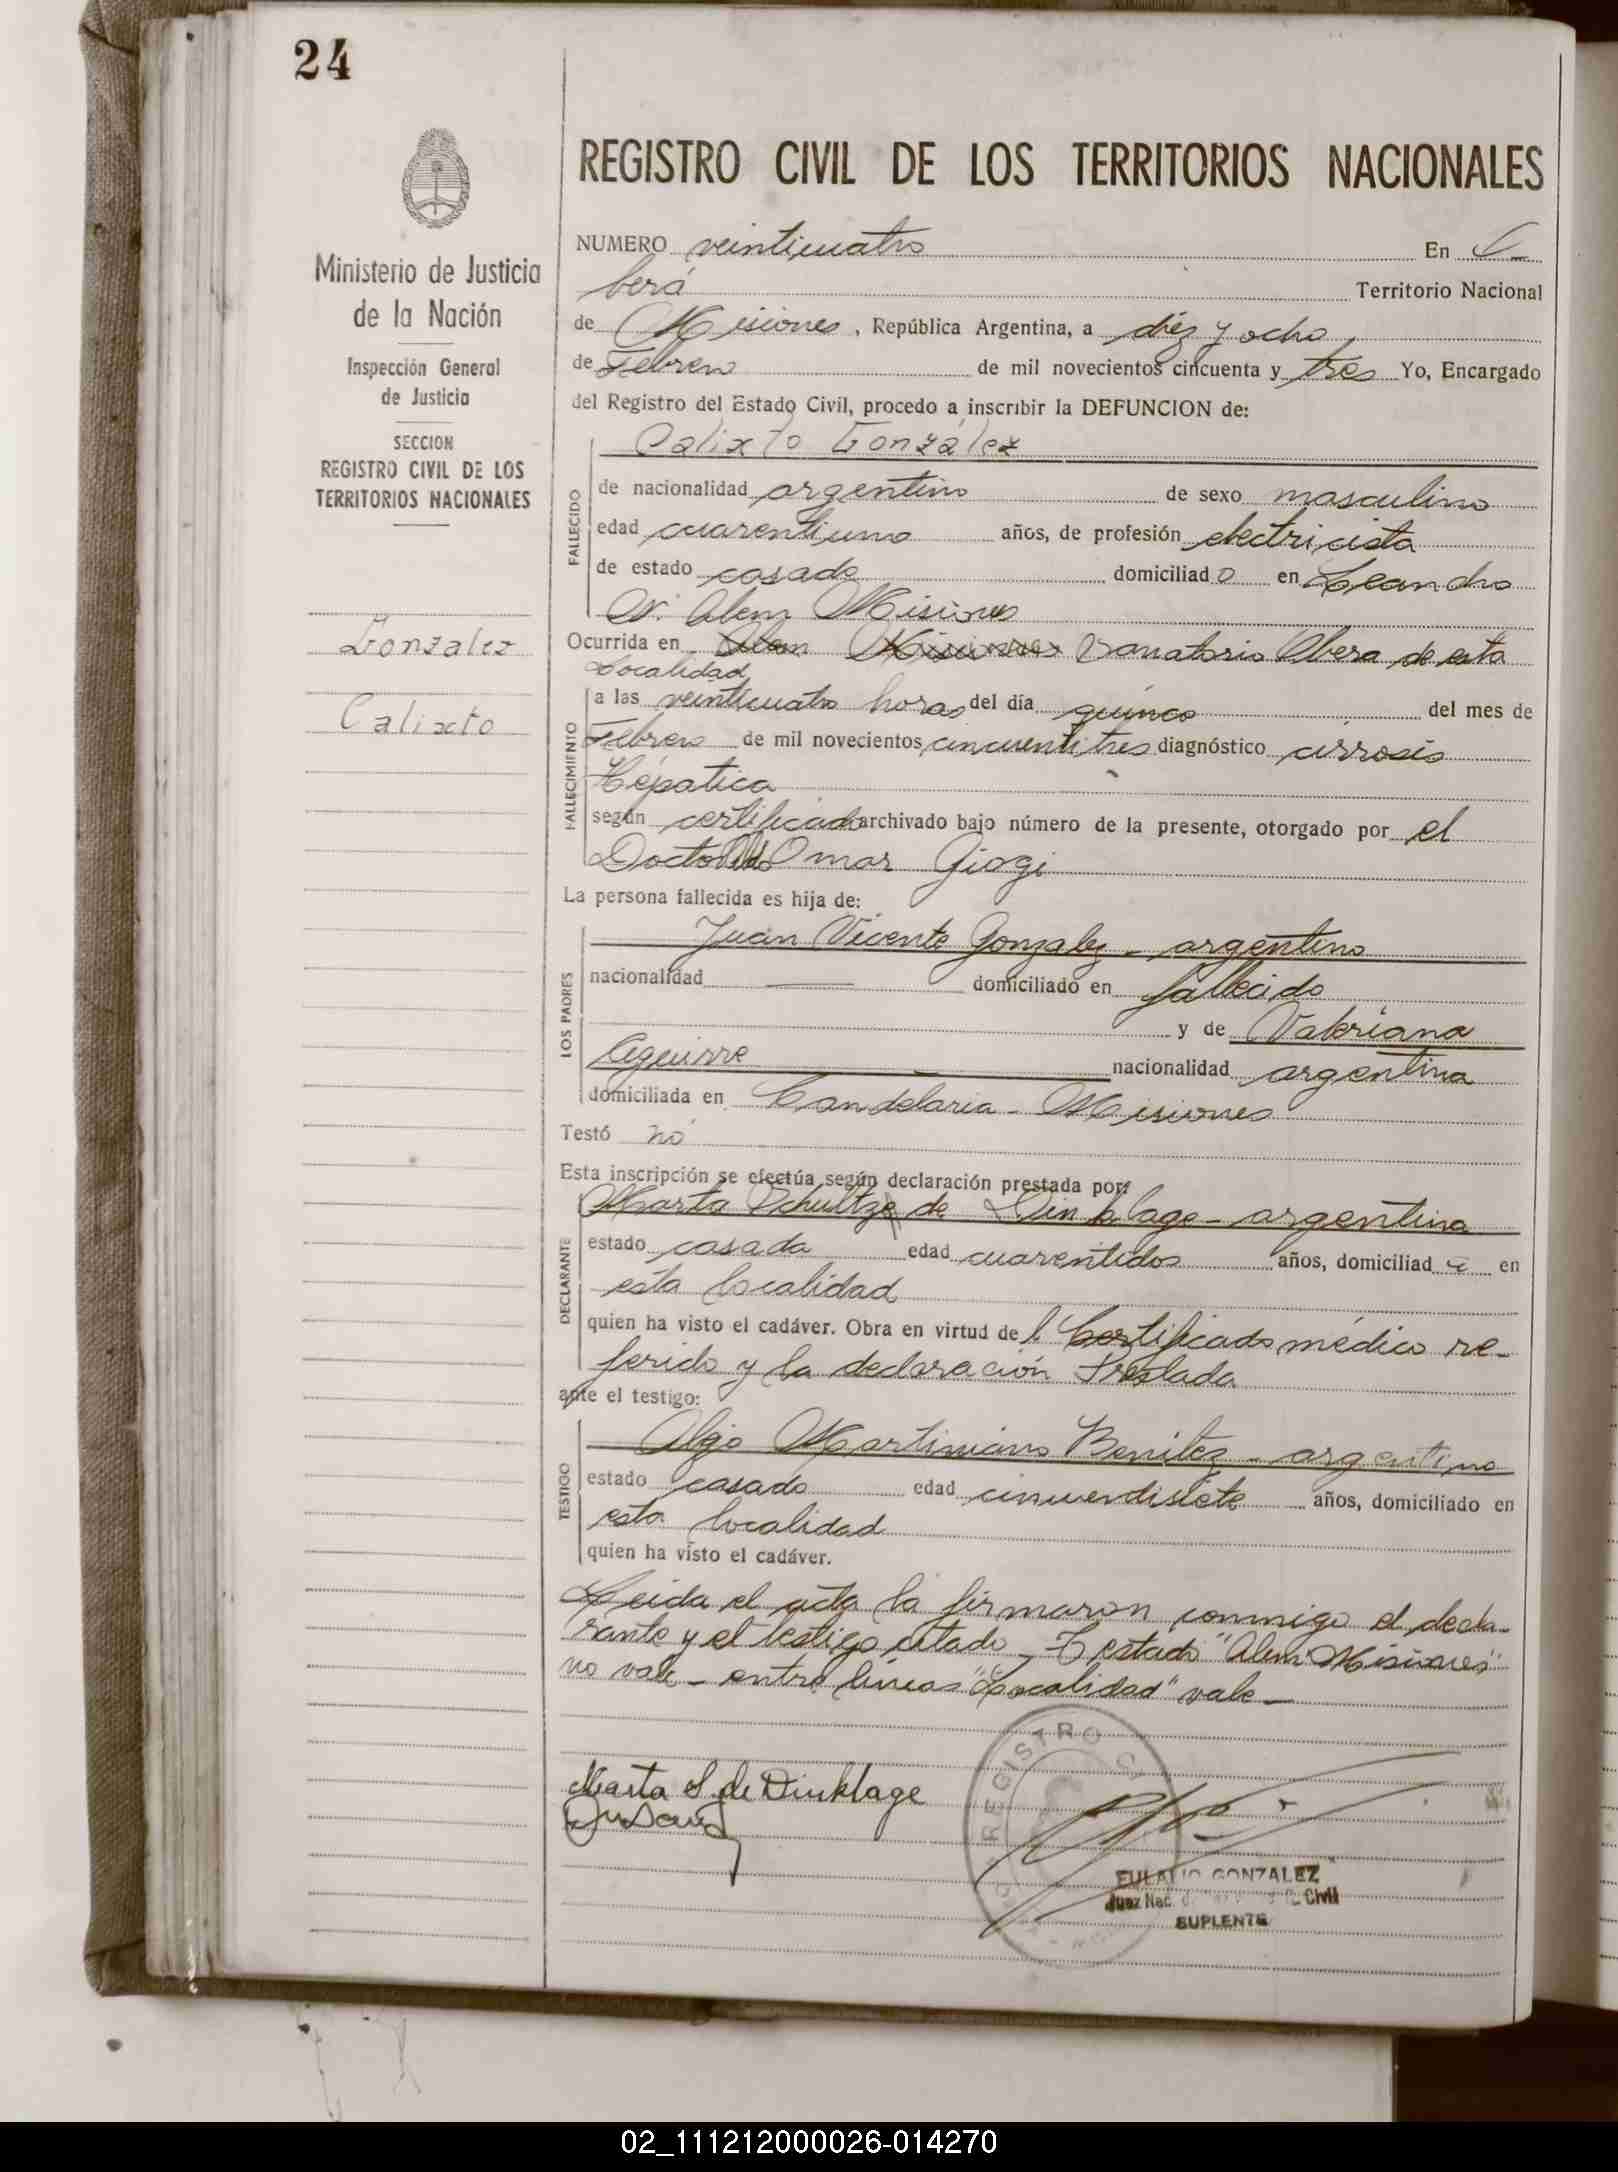 24
REGISTRO CIVIL DE LOS TERRITORIOS NACIONALES
Ministerio de Justicia
de la Nación
Inspección General
de Justicia
SECCION
REGISTRO CIVIL DE LOS
TERRITORIOS NACIONALES
Gonzalez
Calixto
NUMERO veinticuatro En O-
berá Territorio Nacional
de Misiones, República Argentina, a diez y ocho
de Febrero de mil novecientos cincuenta y tres Yo, Encargado
del Registro del Estado Civil, procedo a inscribir la DEFUNCION de:
Calixto González
FALLECIDO
de nacionalidad argentino de sexo masculino
edad cuarentiuno años, de profesión electricista
de estado casado domiciliado en Leandro
N. Alem Misiones
Ocurrida en Alem Misiones Sanatorio Obera de esta
Localidad
FALLECIMIENTO
a las veinticuatro horas del día quince del mes de
Febrero de mil novecientos cincuentitres diagnóstico cirrosis
Hépatica
según certificado archivado bajo número de la presente, otorgado por el
Doctor Omar Giogi
La persona fallecida es hija de:
LOS PADRES
Juan Vicente Gonzalez - argentino
nacionalidad — domiciliado en fallecido
y de Valeriana
Aguirre nacionalidad argentina
domiciliada en Candelaria - Misiones
Testó nó
Esta inscripción se efectúa según declaración prestada por:
DECLARANTE
Marta Schultze de Dinklage - argentina
estado casada edad cuarentidos años, domiciliad a en
esta localidad
quien ha visto el cadáver. Obra en virtud del Certificado médico re-
ferido y la declaración Prestada
ante el testigo:
TESTIGO
Martiniano Benitez - argentino
estado casado edad cincuendisiete años, domiciliado en
esta localidad
quien ha visto el cadáver.
Leida el acta la firmaron conmigo el decla-
rante y el testigo citado - Testado "Alem Misiones"
no vale - entre líneas "Localidad" vale -
Marta S. de Dinklage
REGISTRO CI
EULALIO GONZALEZ
Juez Nac. Civil
SUPLENTE
02_111212000026-014270